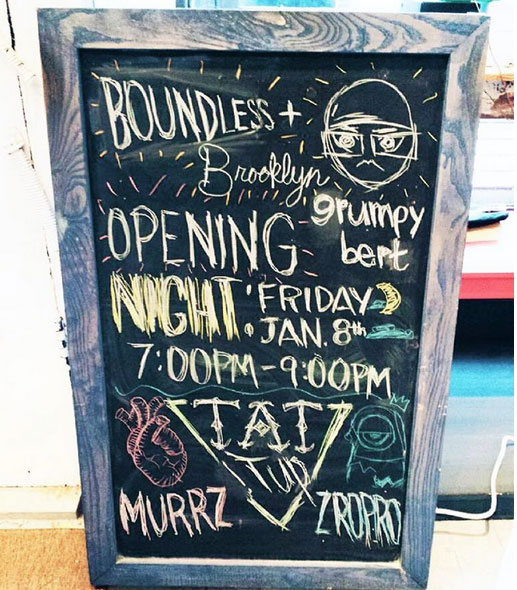 BOUNDLESS +
Brooklyn
grumpy
bert
OPENING
NIGHT! FRIDAY
JAN. 8th
7:00PM - 9:00PM
TAT
IT UP
MURRZ
ZROPRO